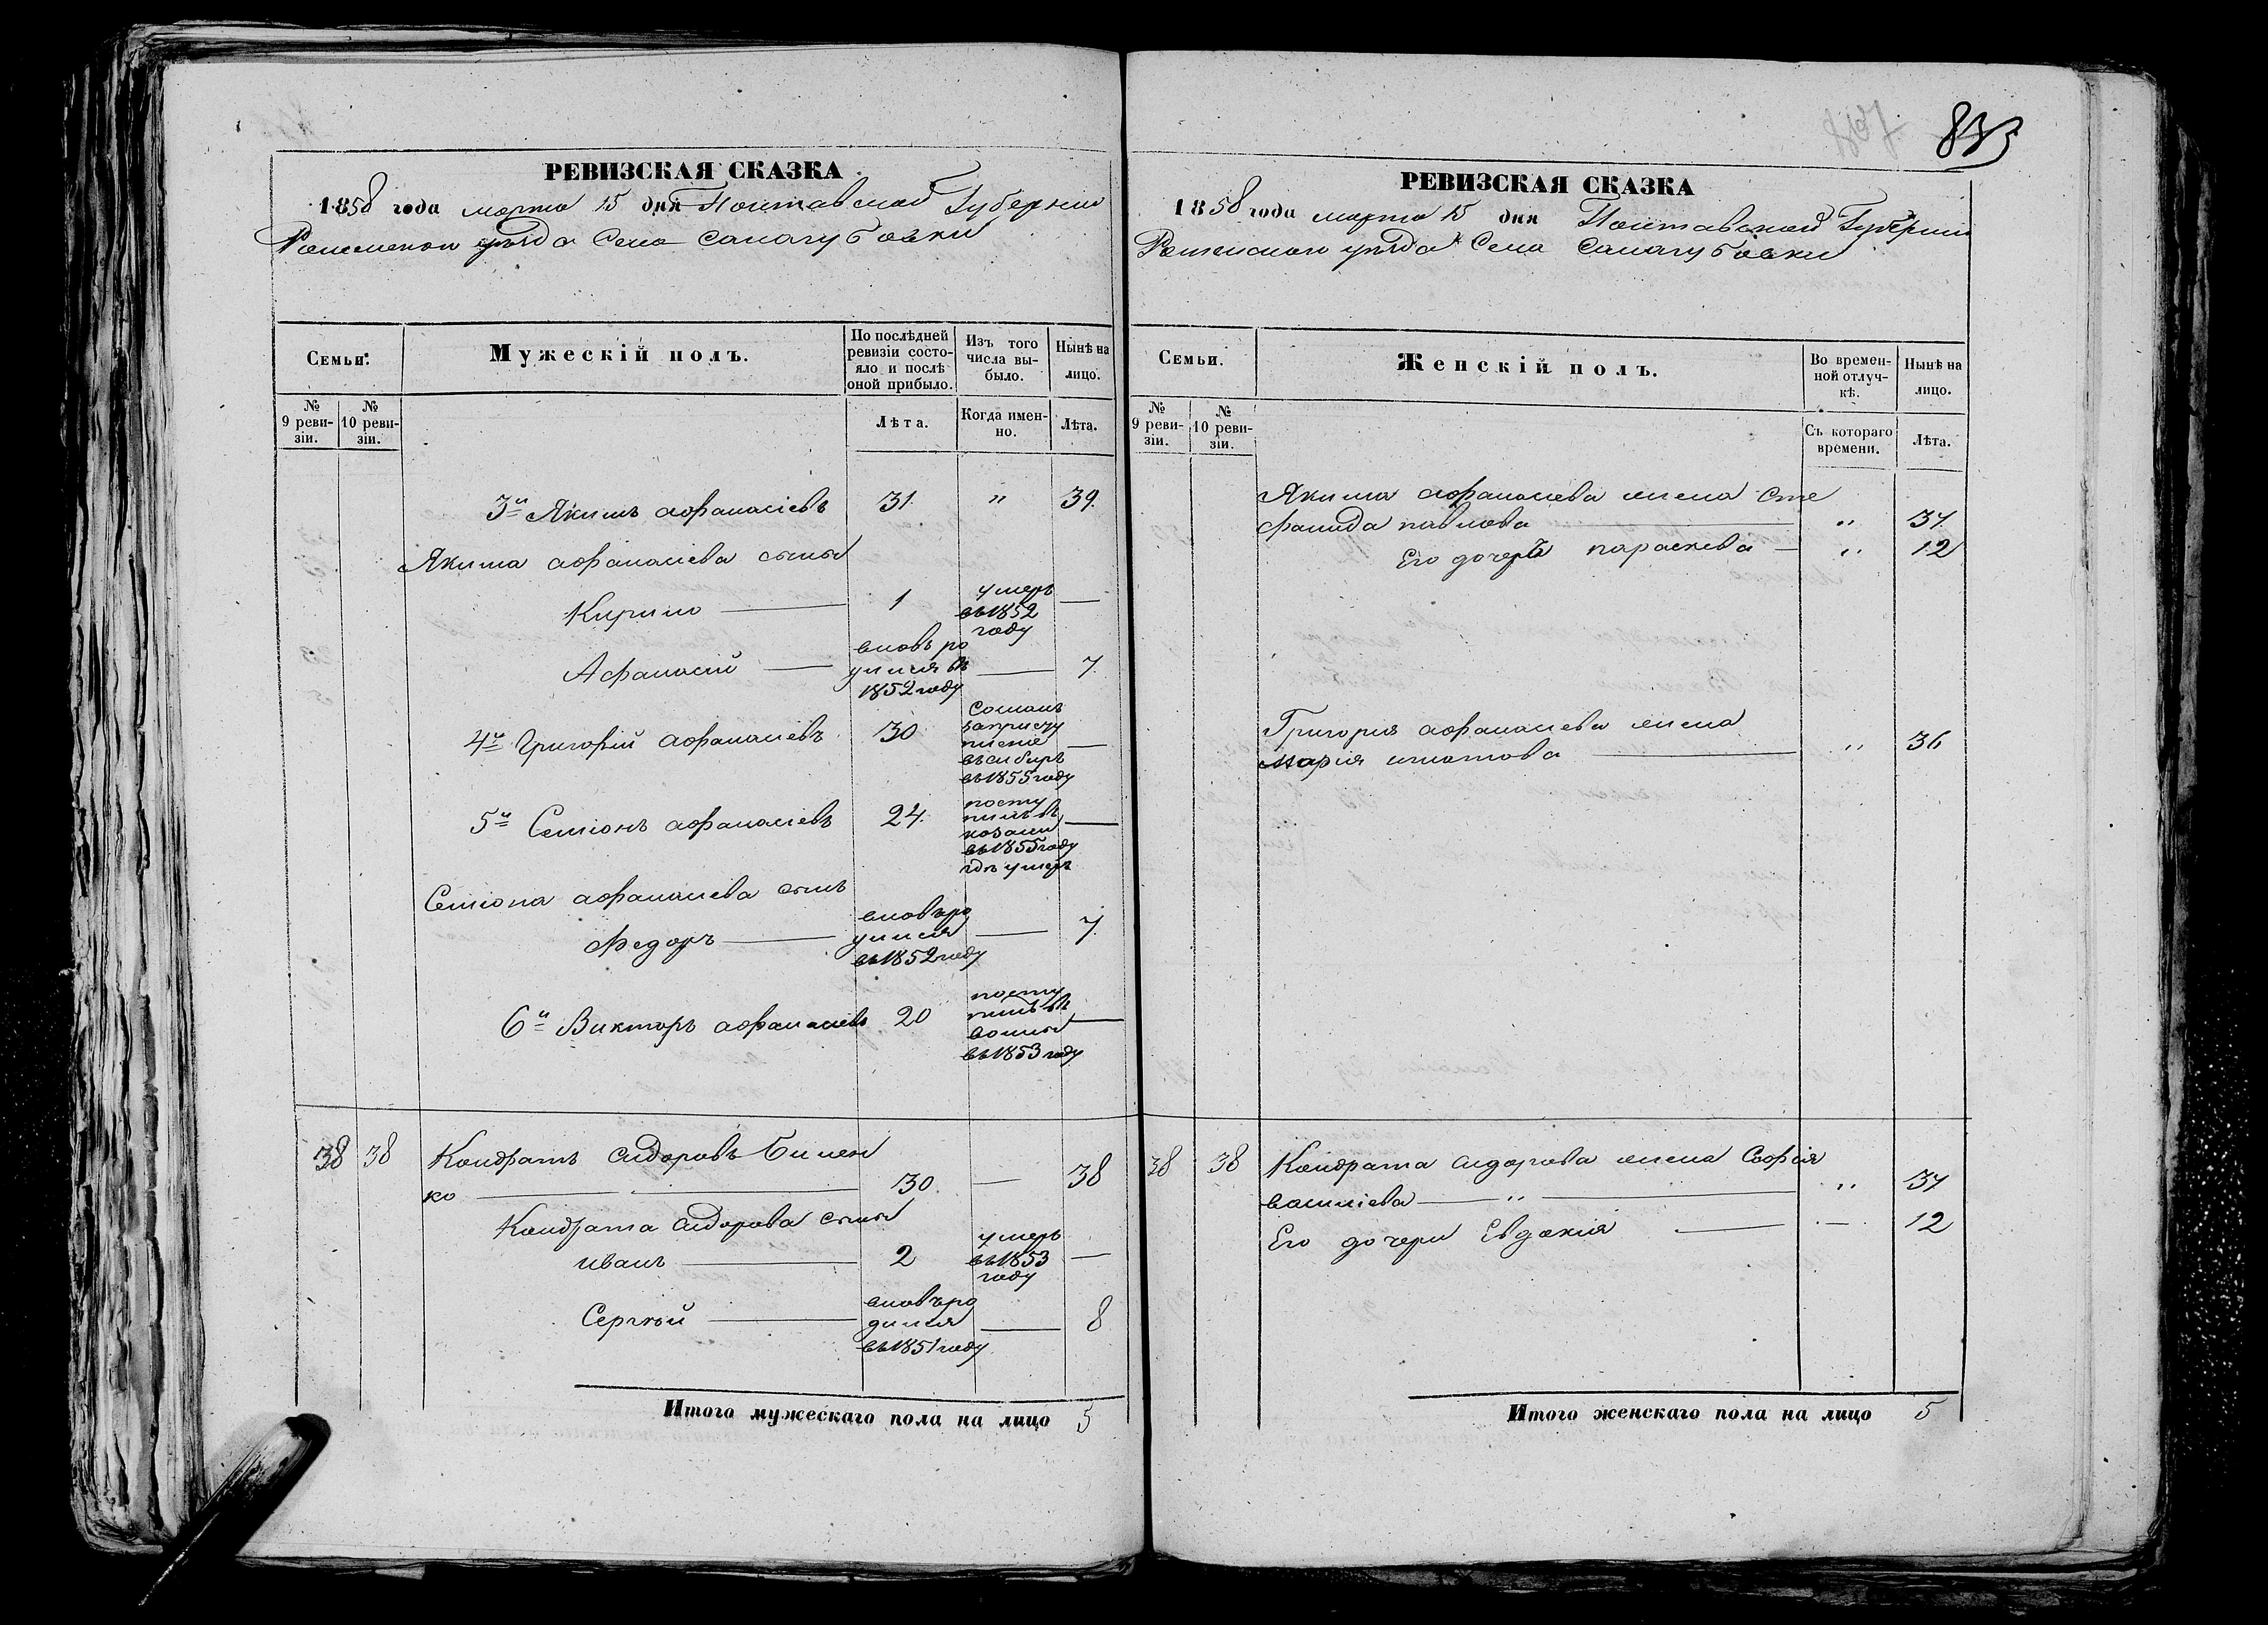 833
РЕВИЗСКАЯ СКАЗКА
1858 года марта 15 дня Полтавской Губернии
Роменскаго уѣзда Села Салагубовки
Семьи.
Мужескій полъ.
По послѣдней ревизіи состояло и послѣ оной прибыло.
Изъ того числа выбыло.
Нынѣ на лицо.
№ 9 ревизіи.
№ 10 ревизіи.
Лѣта.
Когда именно.
Лѣта.
3й Якимъ афанасіевъ 31. " 39.
Якима афанасіева сыны
Кирило 1 умеръ въ 1852 году —
Афанасій вновь родился въ 1852 году — 7.
4й Григорій афанасіевъ 30 Сосланъ въ сибирь въ 1855 году —
5й Семіонъ афанасіевъ 24. поступилъ въ козаки въ 1855 году гдѣ умеръ —
Семіона афанасіева сынъ
Федоръ вновь родился въ 1852 году — 7.
6й Викторъ афанасіевъ 20 поступилъ въ 1853 году —
38 38 Кондратъ сидоровъ Билен
ко 30. — 38
Кондрата сидорова сыны
иванъ 2 умеръ въ 1853 году —
Сергѣй вновь родился въ 1851 году — 8
Итого мужескаго пола на лицо 5
РЕВИЗСКАЯ СКАЗКА
1858 года марта 15 дня Полтавской Губернии
Роменскаго уѣзда Села Салагубовки
Семьи.
Женскій полъ.
Во временной отлучкѣ.
Нынѣ на лицо.
№ 9 ревизіи.
№ 10 ревизіи.
Съ котораго времени.
Лѣта.
Якима афанасіева жена Сте
фанида павлова " 37.
Его дочерь параскева — " 12
Григорія афанасіева жена
марія игнатова " 36
38 38 Кондрата сидорова жена Софія
василіева " " 37
Его дочери Евдокія — 12
Итого женскаго пола на лицо 5